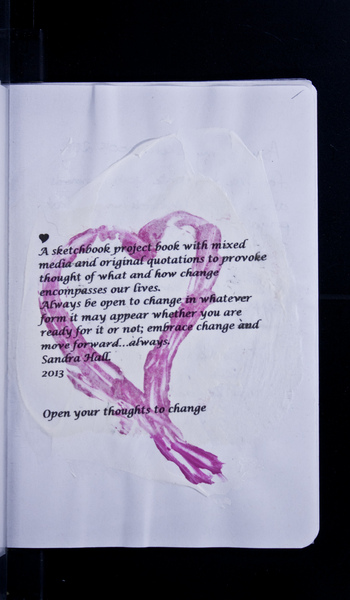 A sketchbook project book with mixed
media and original quotations to provoke
thought of what and how change
encompasses our lives.
Always be open to change in whatever
form it may appear whether you are
ready for it or not; embrace change and
move forward...always,
Sandra Hall
2013
Open your thoughts to change